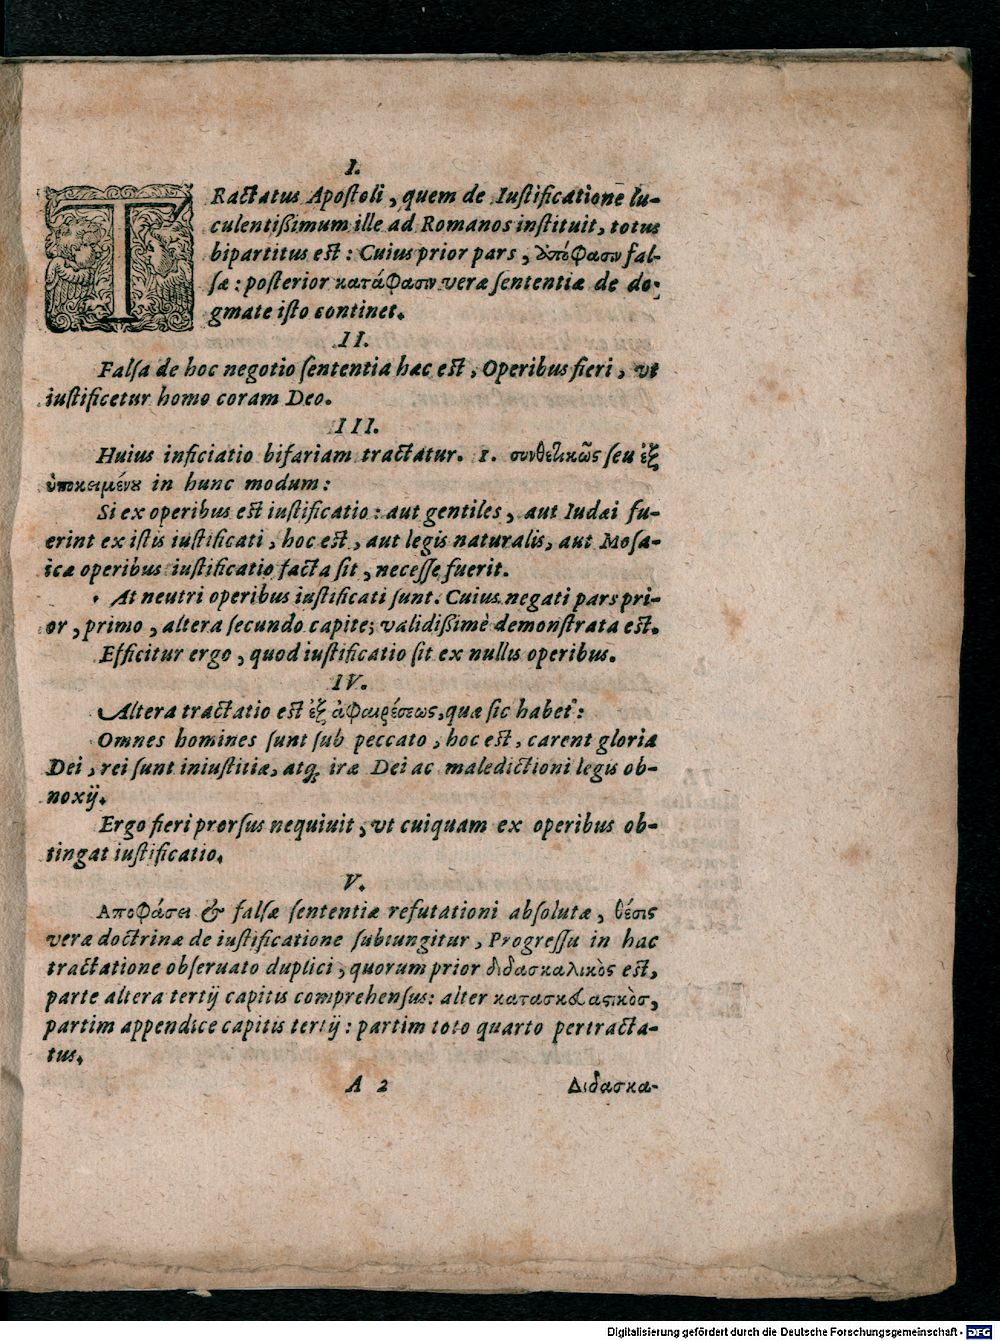 I.
TRactatus Apostoli, quem de Iustificatione lu-
culentißimum ille ad Romanos instituit, totus
bipartitus est: Cuius prior pars, ἀπόφασιν fal-
sæ: posterior κατάφασιν veræ sententiæ de do-
gmate isto continet.
II.
Falsa de hoc negotio sententia hæc est, Operibus fieri, vt
iustificetur homo coram Deo.
III.
Huius inficiatio bifariam tractatur. 1. συνθετικῶς seu ἐξ
ὑποκειμένου in hunc modum:
Si ex operibus est iustificatio: aut gentiles, aut Iudæi fu-
erint ex istis iustificati, hoc est, aut legis naturalis, aut Mosa-
icæ operibus iustificatio facta sit, necesse fuerit.
At neutri operibus iustificati sunt. Cuius negati pars pri-
or, primo, altera secundo capite; validißimè demonstrata est.
Efficitur ergo, quod iustificatio sit ex nullis operibus.
IV.
Altera tractatio est ἐξ ἀφαιρέσεως, quæ sic habet:
Omnes homines sunt sub peccato, hoc est, carent gloria
Dei, rei sunt iniustitiæ, atq; iræ Dei ac maledictioni legis ob-
noxij.
Ergo fieri prorsus nequiuit, vt cuiquam ex operibus ob-
tingat iustificatio.
V.
Αποφάσει & falsæ sententiæ refutationi absolutæ, θέσις
veræ doctrinæ de iustificatione subiungitur, Progressu in hac
tractatione obseruato duplici, quorum prior διδασκαλικὸς est,
parte altera tertij capitis comprehensus: alter κατασκευαστικὸς,
partim appendice capitis tertij: partim toto quarto pertracta-
tus.
A 2 Διδασκα-
Digitalisierung gefördert durch die Deutsche Forschungsgemeinschaft - DFG